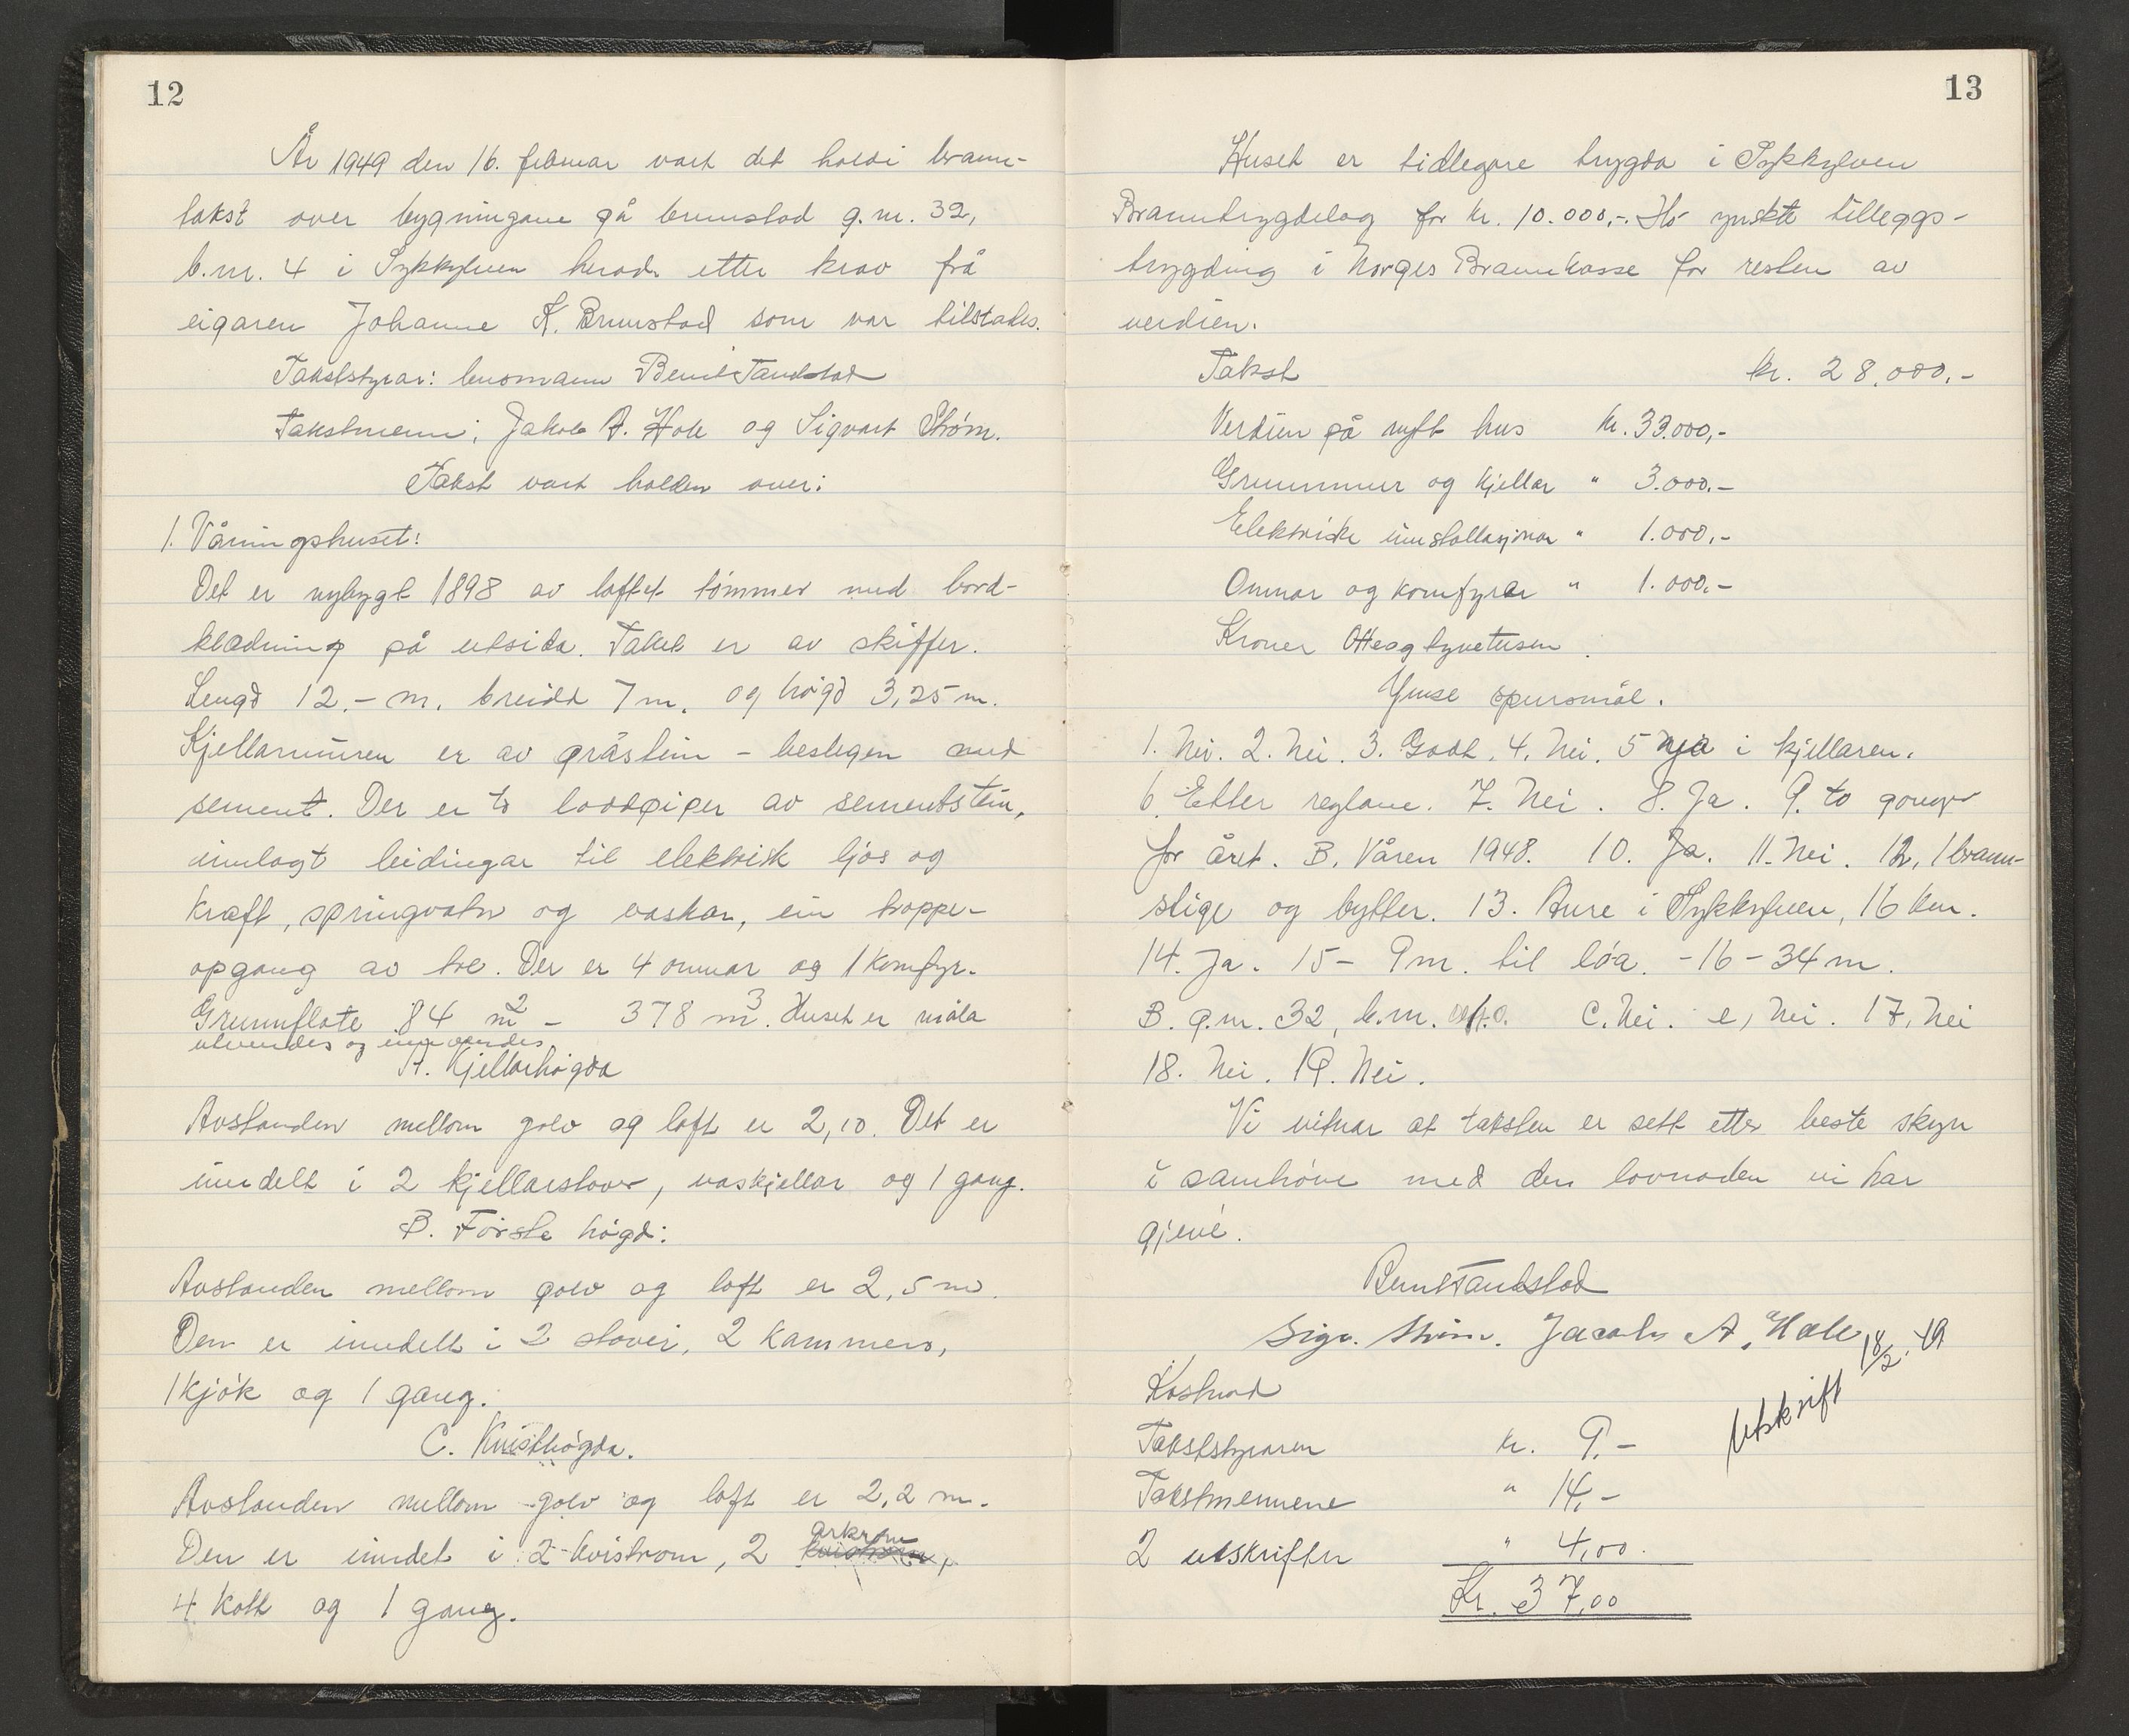 12
År 1949 den 16. februar vart det haldi brann-
takst over bygningane på brunstad g.nr. 32,
b.nr. 4 i Sykkylven herad etter krav frå
eigaren Johanne K. Brunstad som var tilstades.
Takststyrar: lensmann Bernt Tandstad
Takstmenn: Jakob A. Hole og Sigvart Strøm.
Takst vart halden over:
1. Våningshuset:
Det er nybygt 1898 av laftet tømmer med bord-
klædning på utsida. Taket er av skiffer.
Lengd 12.- m. breidd 7 m. og høgd 3,25 m.
Kjellarmuren er av gråstein - beslegen med
sement. Der er to loddpiper av sementstein,
innlagt leidingar til elektrisk ljos og
kraft, springvatn og vaskar, ein troppe-
opgang av tre. Der er 4 omnar og 1 komfyr.
Grunnflate 84 m2 - 378 m3. Huset er måla
utvendes og innvendes
A. Kjellarhøgda
Avstanden mellom golv og loft er 2,10. Det er
inndelt i 2 kjellarstover, vaskjellar og 1 gang.
B. Første høgd:
Avstanden mellom golv og loft er 2,5 m.
Den er inndelt i 2 stover, 2 kammers,
1 kjøk og 1 gang.
C. Kvisthøgda.
Avstanden mellom golv og loft er 2,2 m.
Den er inndelt i 2 kvistrom, 2 arkrom
4 kott og 1 gang.
13
Huset er tidlegare trygda i Sykkylven
Branntrygdelag for kr. 10.000,-. Ho ynskte tilleggs-
trygding i Norges Brannkasse for resten av
verdien.
Takst kr. 28.000.-
Verdien på nytt hus kr. 33.000,-
Grunnmur og kjellar " 3.000.-
Elektriske innstallasjonar " 1.000.-
Omnar og komfyrar " 1.000.-
Kroner Otteogtyvetusen.
Ymse spursmål.
1. Nei. 2. Nei. 3. Godt. 4. Nei. 5 Ja i kjellaren.
6. Etter reglane. 7. Nei. 8. Ja. 9. to gonger
for året. B. Våren 1948. 10. Ja. 11. Nei. 12. 1 brann-
stige og bytter. 13. Aure i Sykkylven, 16 km.
14. Ja. 15 - 9 m. til løa. - 16 - 34 m.
B. g.nr. 32, b.nr. C. Nei. e, Nei. 17. Nei
18. Nei. 19. Nei.
Vi vitnar at taksten er sett etter beste skyn
i samhøve med den lovnaden vi har
gjeve.
Bernt Tandstad
Sigv. Strøm. Jacob A. Hole
Utskrift 18/2. 49
Kostnad
Takststyraren kr. 9.-
Takstmennene " 14.-
2 utskrifter " 4,00.
Kr. 37,00